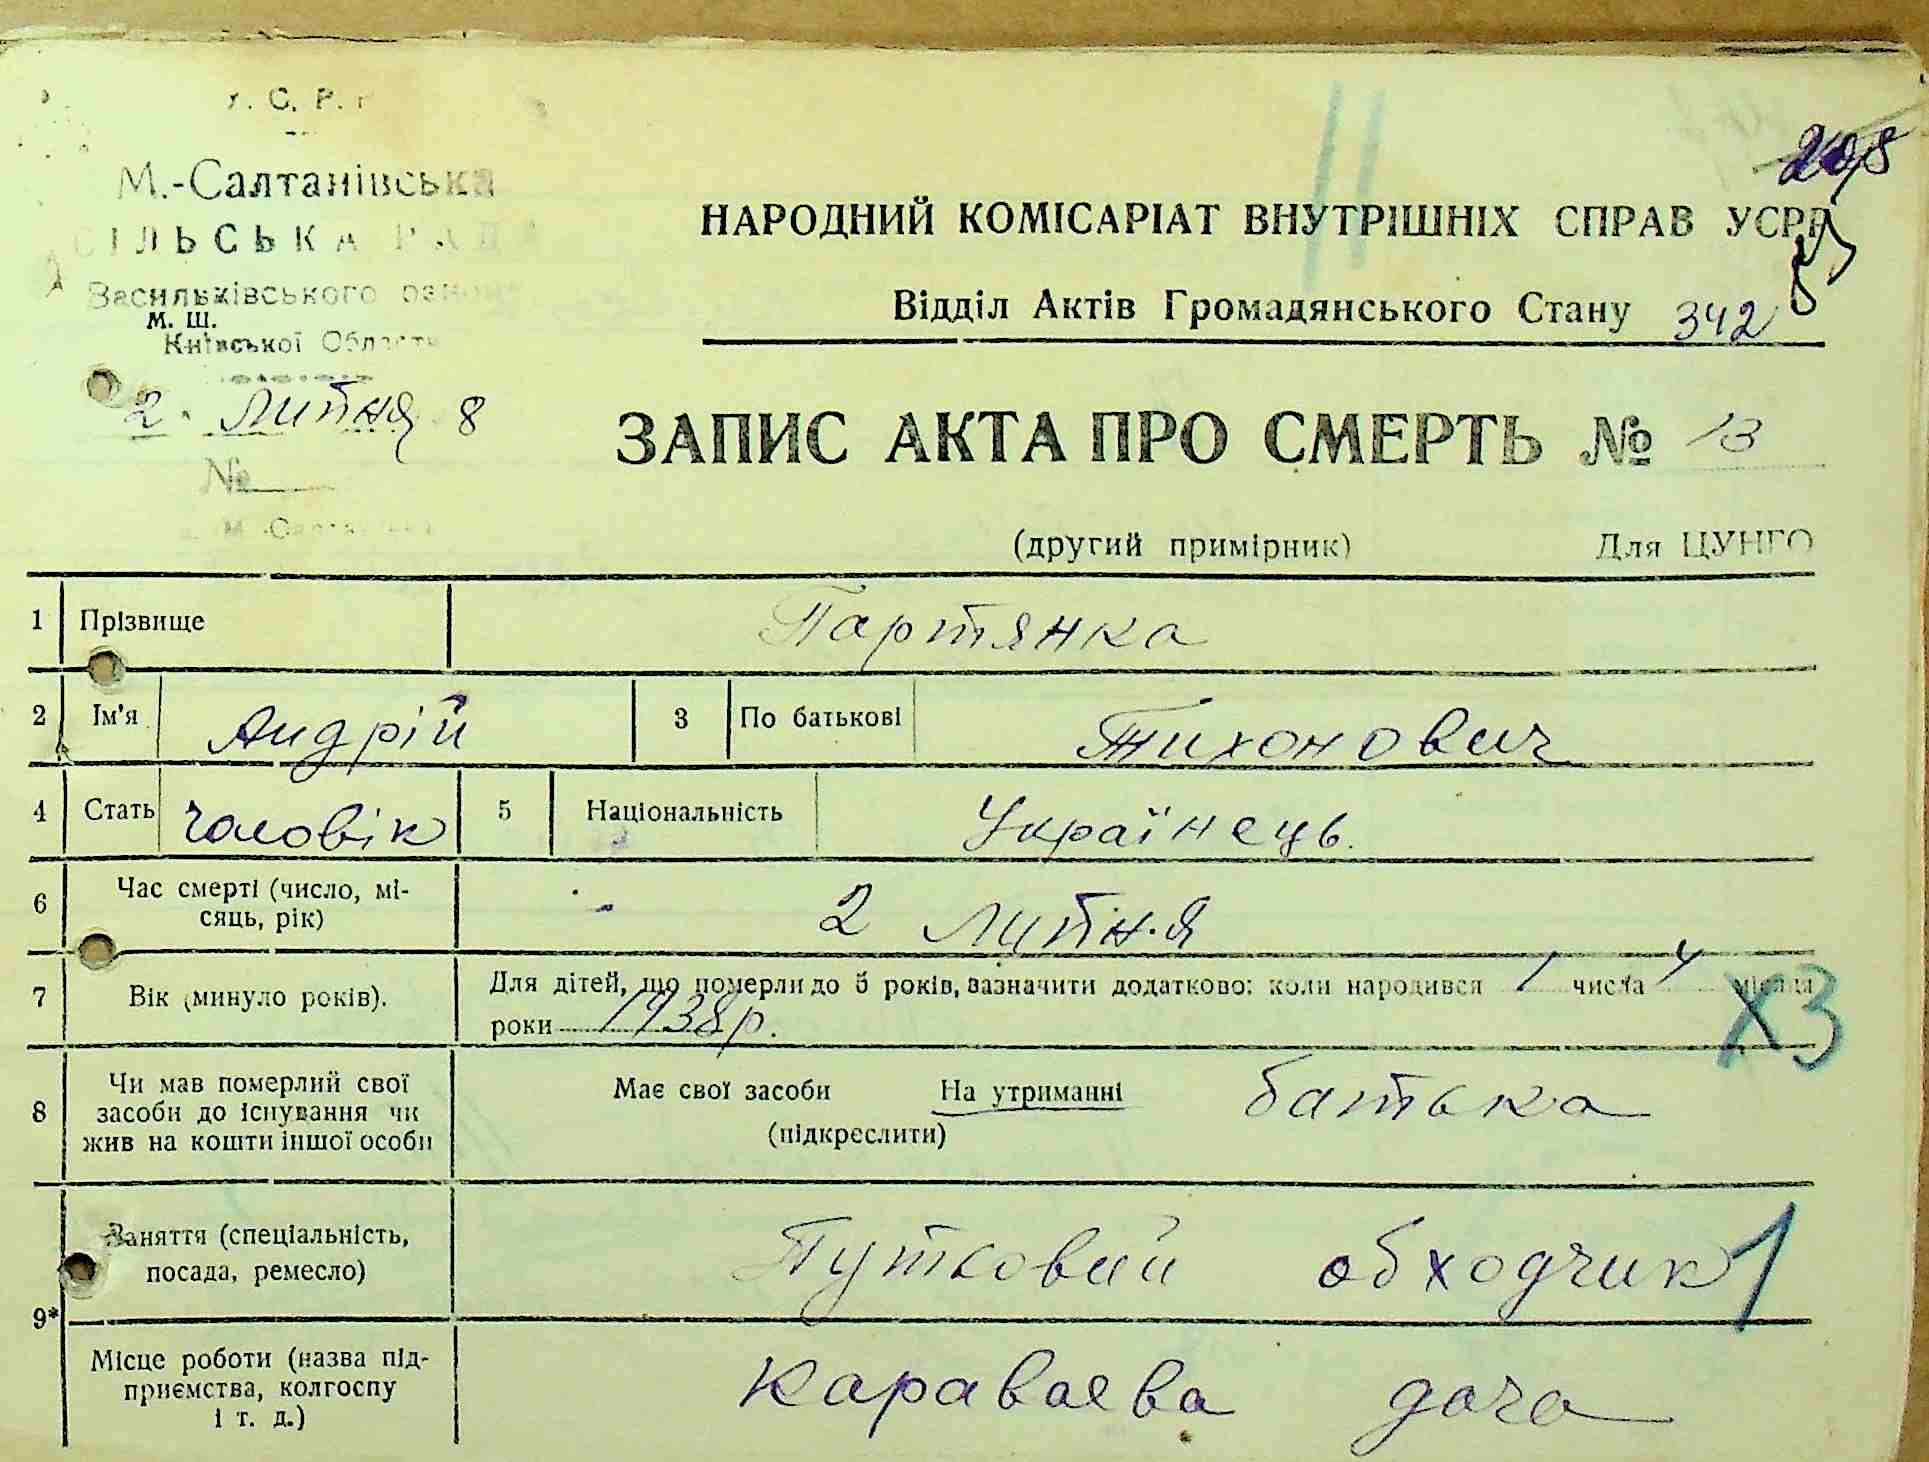 У. С. Р. Р.
М.-Салтанівська
СІЛЬСЬКА РАДА
Васильківського району
М. Ш.
Київської Області
2. липня 8
№
208
НАРОДНИЙ КОМІСАРІАТ ВНУТРІШНІХ СПРАВ УСРР
Відділ Актів Громадянського Стану 342
ЗАПИС АКТА ПРО СМЕРТЬ № 13
(другий примірник) Для ЦУНГО
1 Прізвище Партянка
2 Ім'я Андрій 3 По батькові Тихонович
4 Стать чоловік 5 Національність Українець.
6 Час смерті (число, мі-
сяць, рік) 2 липня
7 Вік (минуло років). Для дітей, що померли до 5 років, зазначити додатково: коли народився 1 числа 4 місяця
роки 1938р.
Х3
8 Чи мав померлий свої
засоби до існування чи
жив на кошти іншої особи
Має свої засоби На утриманні батька
(підкреслити)
9* Заняття (спеціальність,
посада, ремесло) Путковий обходчик 1
Місце роботи (назва під-
приємства, колгоспу
і т. д.) Караваєва дача